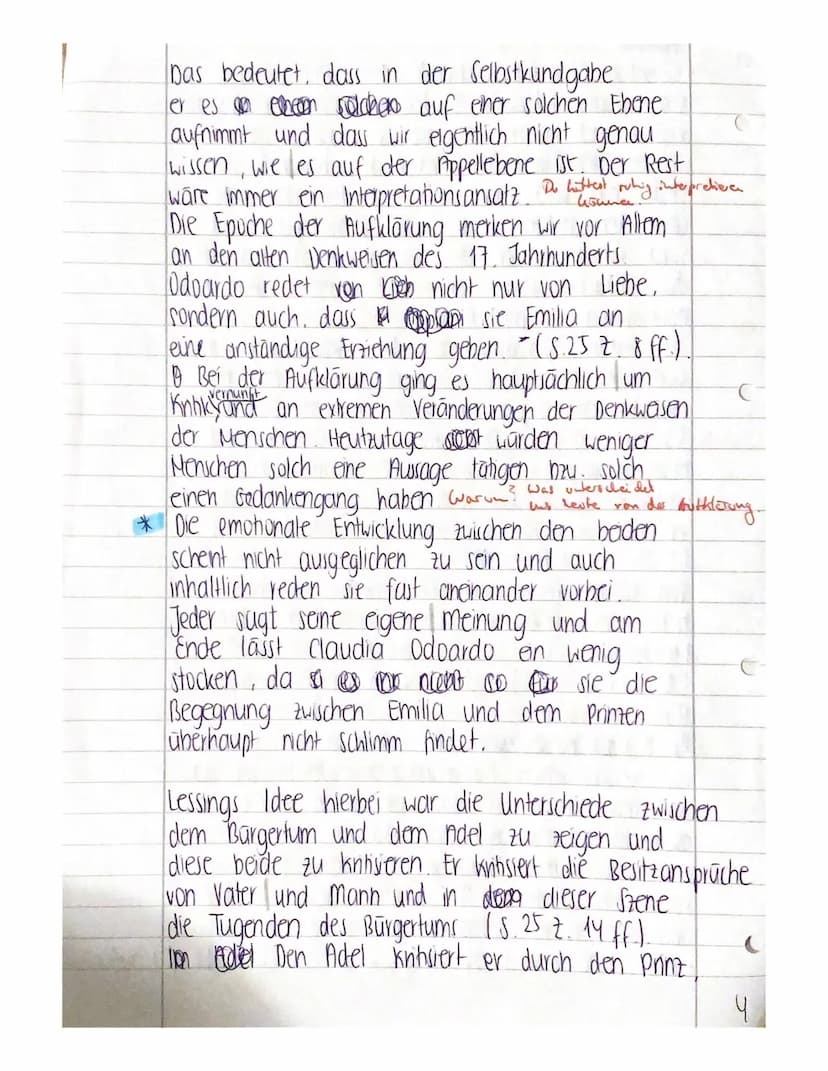 Das bedeutet, dass in der Selbstkundgabe
er es auf einer solchen Ebene
aufnimmt und dass wir eigentlich nicht genau
wissen, wie es auf der Appellebene ist. Der Rest
wäre immer ein Interpretationsansatz. Du hättest ruhig interpretieren
können.
Die Epoche der Aufklärung merken wir vor Allem
an den alten Denkweisen des 17. Jahrhunderts.
Odoardo redet nicht nur von Liebe,
sondern auch, dass sie Emilia an
eine anständige Erziehung geben. (S.25 Z. 8 ff.).
Bei der Aufklärung ging es hauptsächlich um
Kritik, vernunft und an extremen Veränderungen der Denkweisen
der Menschen. Heutzutage würden weniger
Menschen solch eine Aussage tätigen bzw. solch
einen Gedankengang haben Warum? Was unterscheidet
uns heute von der Aufklärung.
* Die emotionale Entwicklung zwischen den beiden
scheint nicht ausgeglichen zu sein und auch
inhaltlich reden sie fast aneinander vorbei.
Jeder sagt seine eigene Meinung und am
Ende lässt Claudia Odoardo ein wenig
stocken, da sie die
Begegnung zwischen Emilia und dem Prinzen
überhaupt nicht schlimm findet.
Lessings Idee hierbei war die Unterschiede zwischen
dem Bürgertum und dem Adel zu zeigen und
diese beide zu kritisieren. Er kritisiert die Besitzansprüche
von Vater und Mann und in dieser Szene
die Tugenden des Bürgertums (S.25 Z. 14 ff.).
Den Adel kritisiert er durch den Prinz,
4